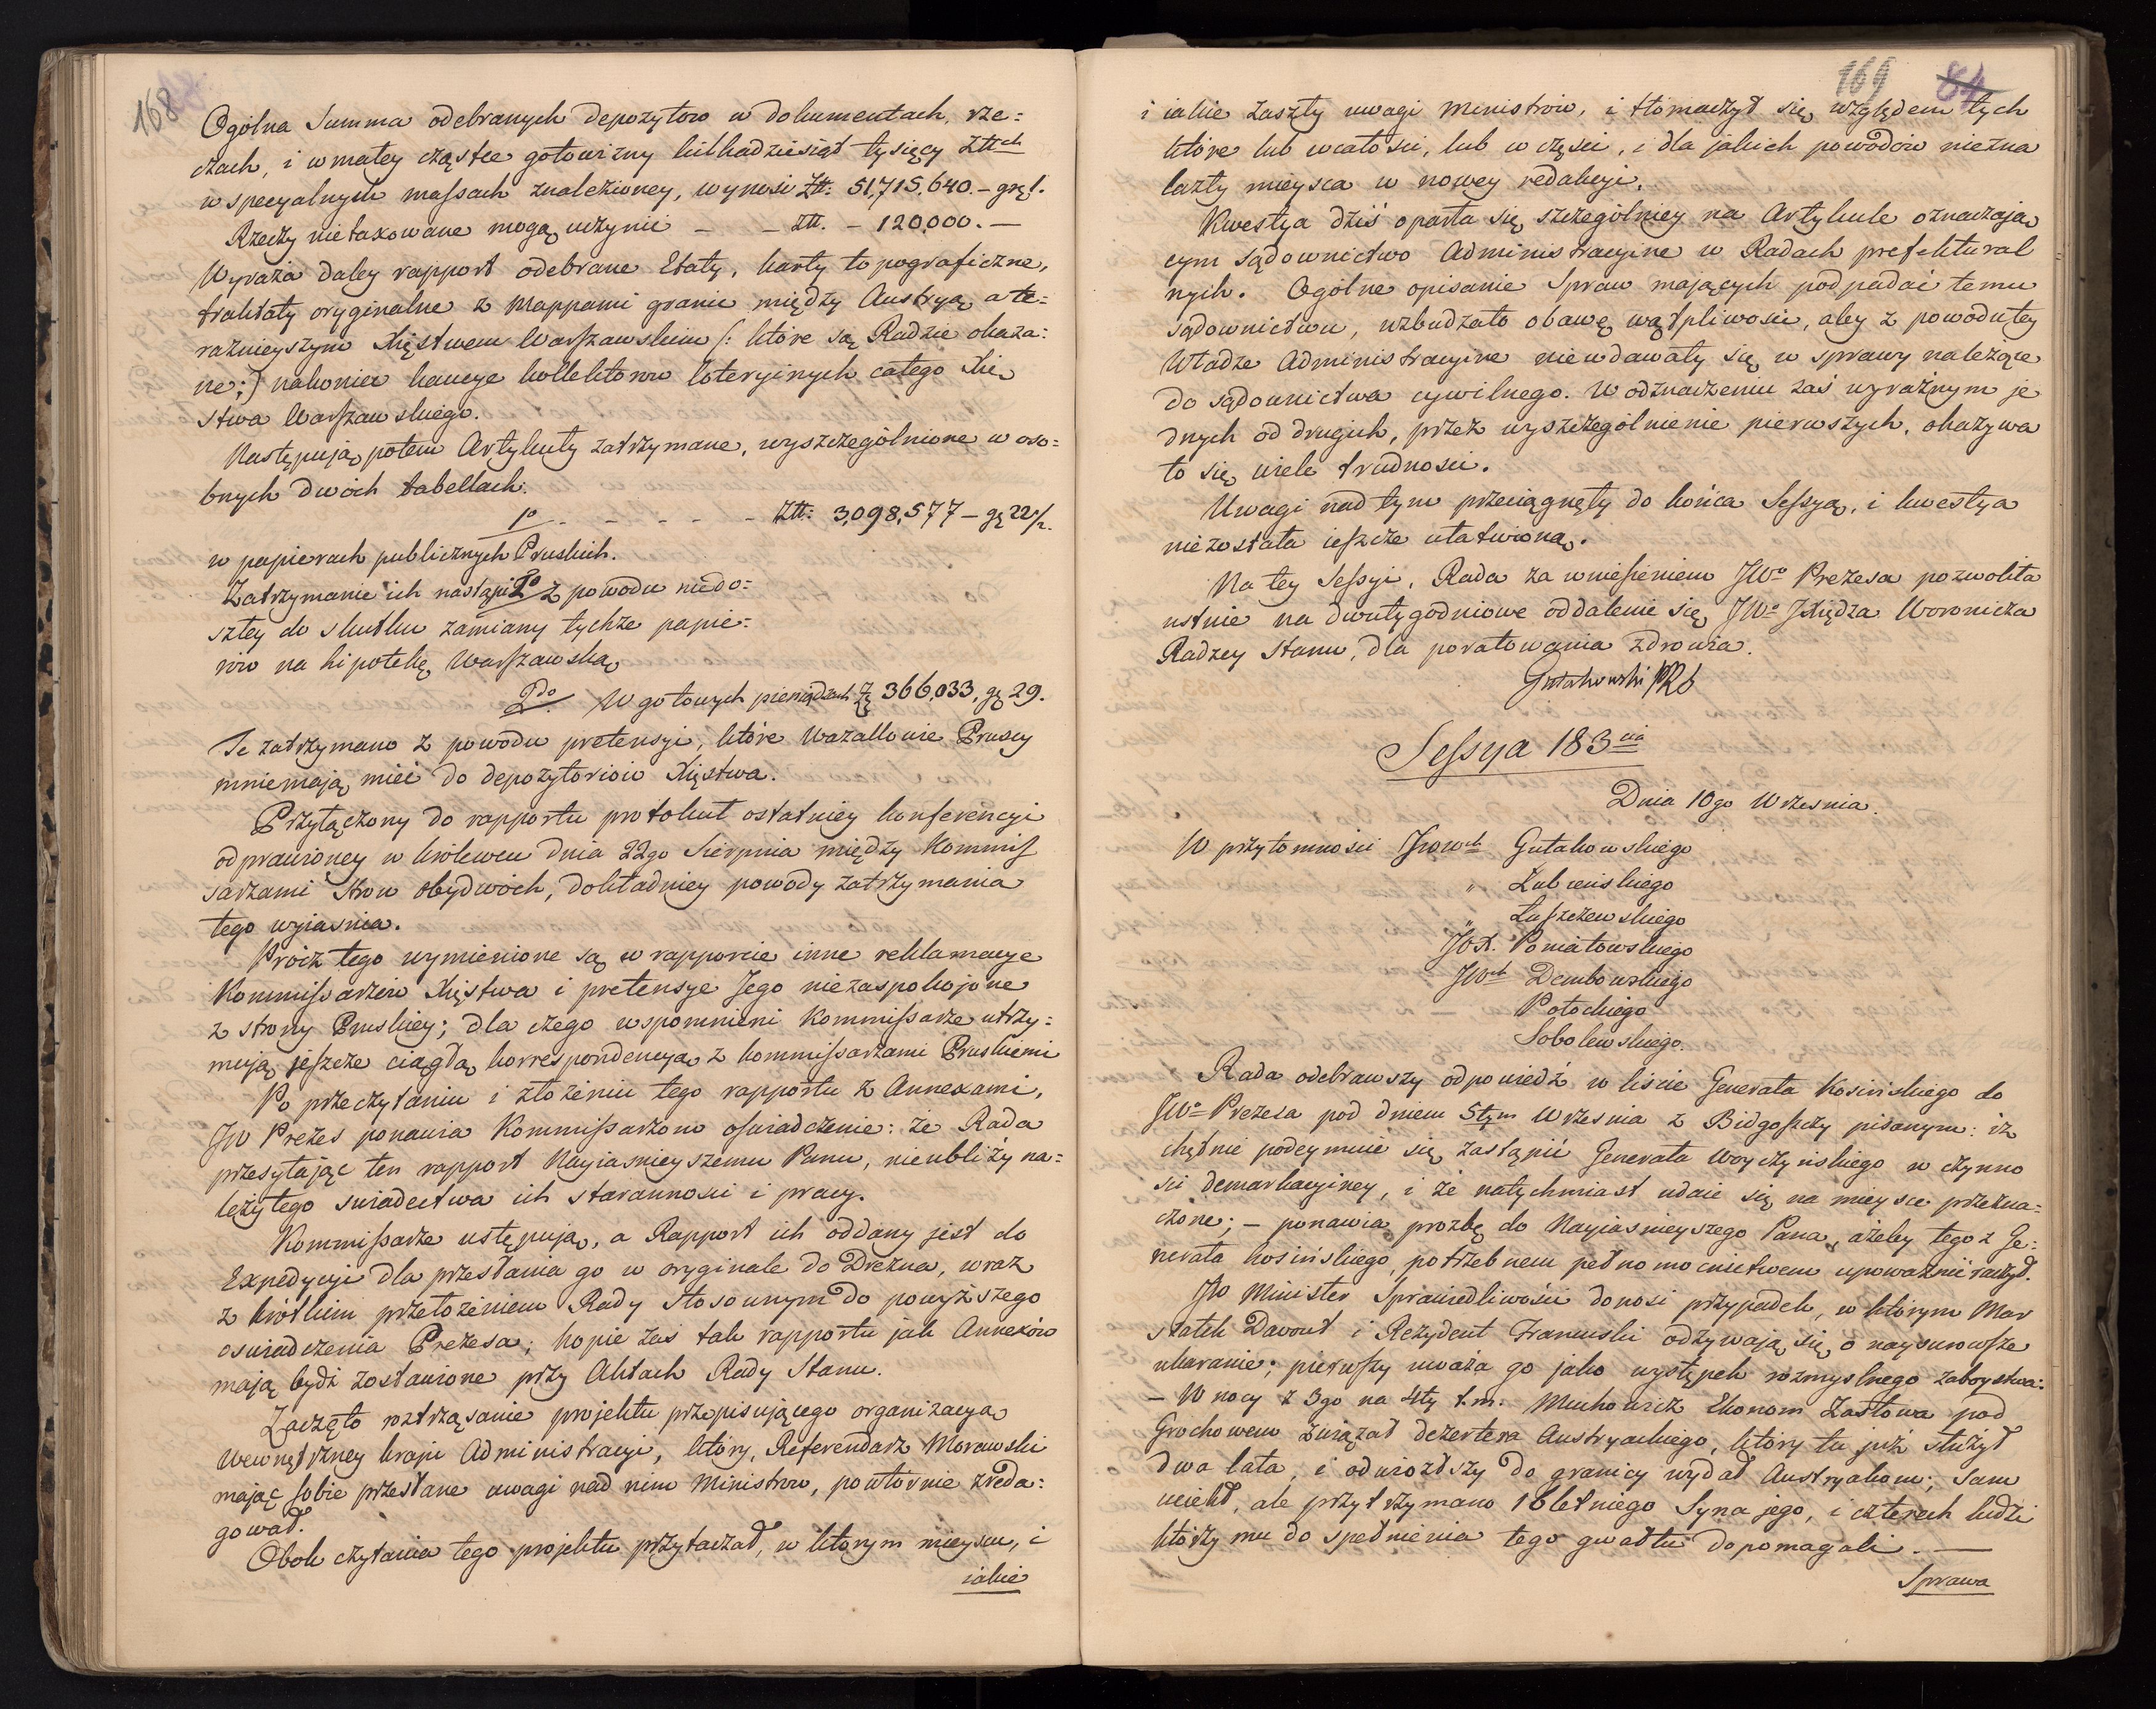 168
Ogólna Summa odebranych depozytow w dokumentach, rze=
czach, i w małey cząstce gotowizny kilkadziesiąt tysięcy Złł<sup>ch</sup>
w specyalnych massach znalezioney, wynosi Złł: 51,715,640.–
Rzeczy nietaxowane mogą uczynić – – Złł. – 120,000.–
Wyraża daley rapport odebrane Etaty, karty topograficzne,
traktaty oryginalne z mappami granic między Austryą a te=
raznieyszym Xięstwem Warszawskim /: które są Radzie okaza=
ne :/ nakoniec kaucye kollektorow loteryinych całego Xię
stwa Warszawskiego.
Następują potem Artykuły zatrzymane, wyszczególnione w oso=
bnych dwóch tabellach:
1º – – – – – Złł: 3,098,577 – gę 22/2.
w papierach publicznych Pruskich.
Zatrzymanie ich nastąpiło z powodu niedo=
szłey do skutku zamiany tychże papie=
rów na hipotekę Warszawską
2do W gotowych pieniądzach Zł 366,033, gę 29.
Te zatrzymano z powodu pretensyi, które Wazallowie Pruscy
mniemają mieć do depozytoriów Xięstwa.
Przyłączony do rapportu protokuł ostatniey konferencyi
odprawioney w Królewcu dnia 22go Sierpnia między Kommis
sarzami Stron obydwóch, dokładniey powody zatrzymania
tego wyiaśnia.
Prócz tego wymienione są w rapporcie inne reklamacye
Kommissarzów Xięstwa i pretensye Jego niezaspokojone
z strony Pruskiey; dla czego wspomnieni Kommissarze utrzy=
mują jeszcze ciągłą korrespondencyą z kommissarzami Pruskiemi
Po przeczytaniu i złożeniu tego rapportu z Annexami,
JW Prezes ponawia Kommissarzom oświadczenie: że Rada
przesyłając ten rapport Nayiasnieyszemu Panu, nieubliży na=
leżytego świadectwa ich staranności i pracy.
Kommissarze ustępują, a Rapport ich oddany jest do
Expedycyi dla przesłania go w oryginale do Drezna, wraz
z krótkim przełożeniem Rady stosownym do powyższego
oswiadczenia Prezesa; kopie zaś tak rapportu jak Annexów
mają bydź zostawione przy Aktach Rady Stanu.
Zaczęto roztrząsanie projektu przepisującego organizacyą
wewnętrzney kraju Administracyi, który, Referendarz Morawski
mając sobie przesłane uwagi nad nim Ministrów, powtórnie zreda=
gował.
Obok czytania tego projektu przytaczał, w którym mieyscu, i
iakie
169 84
i iakie zaszły uwagi Ministrów, i tłomaczył się względem tych
które lub w całości, lub w części, i dla jakich powodów niezna
lazły mieysca w nowey redakcyi.
Kwestya dziś oparta się szczególniey na Artykule oznaczają
cym sądownictwo Administracyine w Radach prefektural
nych. Ogólne opisanie Spraw mających podpadać temu
sądownictwu, wzbudzało obawę wątpliwości, aby z powodu tey
Władze Administracyine niewdawały się w sprawy należące
do sądownictwa cywilnego. W odznaczeniu zaś wyraźnym je
dnych od drugich, przez wyszczególnienie pierwszych, okazywa
ło się wiele trudności.
Uwagi nad tym przeciągnęły do końca Sessyą, i kwestya
niezostała ieszcze ułatwioną.
Na tey Sessyi, Rada za wniesieniem JWo Prezesa pozwoliła
ustnie na dwutygodniowe oddalenie się JWo Xiędza Woronicza
Radzcy Stanu, dla poratowania zdrowia.
Gutakowski
Sessya 183cia
Dnia 10go Września.
W przytomności JWWch Gutakowskiego
" Łubieńskiego
" Łuszczewskiego
JOX. Poniatowskiego
JWch Dembowskiego
Potockiego
Sobolewskiego.
Rada odebrawszy odpowiedź w liście Generała Kosińskiego do
JWo Prezesa pod dniem 5tym Września z Bidgoszczy pisanym: iż
chętnie podeymuie się zastąpić Generała Woyczyńskiego w czynno
ści demarkacyiney, i że natychmiast udaie się na mieysce przezna=
czone; – ponawia prozbę do Nayiasnieyszego Pana, ażeby tegoż Ge=
nerała Kosińskiego, potrzebnem pełnomocnictwem upoważnić raczył.
JW Minister Sprawiedliwości donosi przypadek, w którym Mar
szałek Davout i Rezydent Francuski odzywają się o naysurowsze
ukaranie; pierwszy uważa go jako występek rozmyslnego zaboystwa:
– W nocy z 3go na 4ty t.m. Muchowicz Ekonom Zastowa pod
Grochowem związał dezertera Austryackiego, który tu już służył
dwa lata, i odwiozłszy do granicy wydał Austryakom; Sam
uciekł, ale przytrzymano 16letniego Syna jego, i czterech ludzi
którzy mu do spełnienia tego gwałtu dopomagali. –
Sprawa